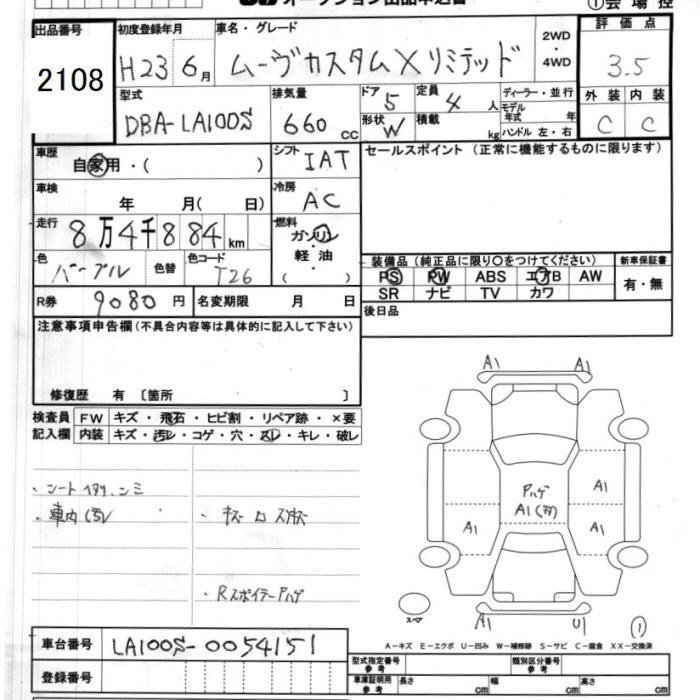 オークション出品申込書 ①会場控
出品番号 初度登録年月 車名・グレード 2WD・4WD 評価点
2108 H23 6月 ムーヴカスタム X リミテッド 3.5
型式 排気量 ドア 5 定員 4人 ディーラー・並行 外装 内装
DBA-LA100S 660cc 形状 W 積載 kg モデル年式 年 C C
ハンドル 左・右
車歴 自家用・( ) シフト IAT セールスポイント(正常に機能するものに限ります)
車検 年 月(日) 冷房 AC
走行 8万4千884km 燃料 ガソリン・軽油( )
色 パープル 色替 色コード T26 装備品(純正品に限り○をつけてください) 新車保証書
PS PW ABS エアB AW 有・無
SR ナビ TV カワ
R券 9080円 名変期限 月 日 後日品
注意事項申告欄(不具合内容等は具体的に記入して下さい)
修復歴 有 〔箇所 〕
検査員 FW キズ・飛石・ヒビ割・リペア跡・×要
記入欄 内装 キズ・汚レ・コゲ・穴・スレ・キレ・破レ
A1 A1
・車内汚レ
・Rスポイラーハゲ
Pハゲ
A1
A1
A1
A1 A1
A1 U1
スペア
(1)
A-キズ E-エクボ U-凹み W-補修跡 S-サビ C-腐食 XX-交換済
車台番号 LA100S-0054151
型式指定番号 参考 類別区分番号 参考
登録番号 車庫証明用 参考 長さ cm 幅 cm 高さ cm